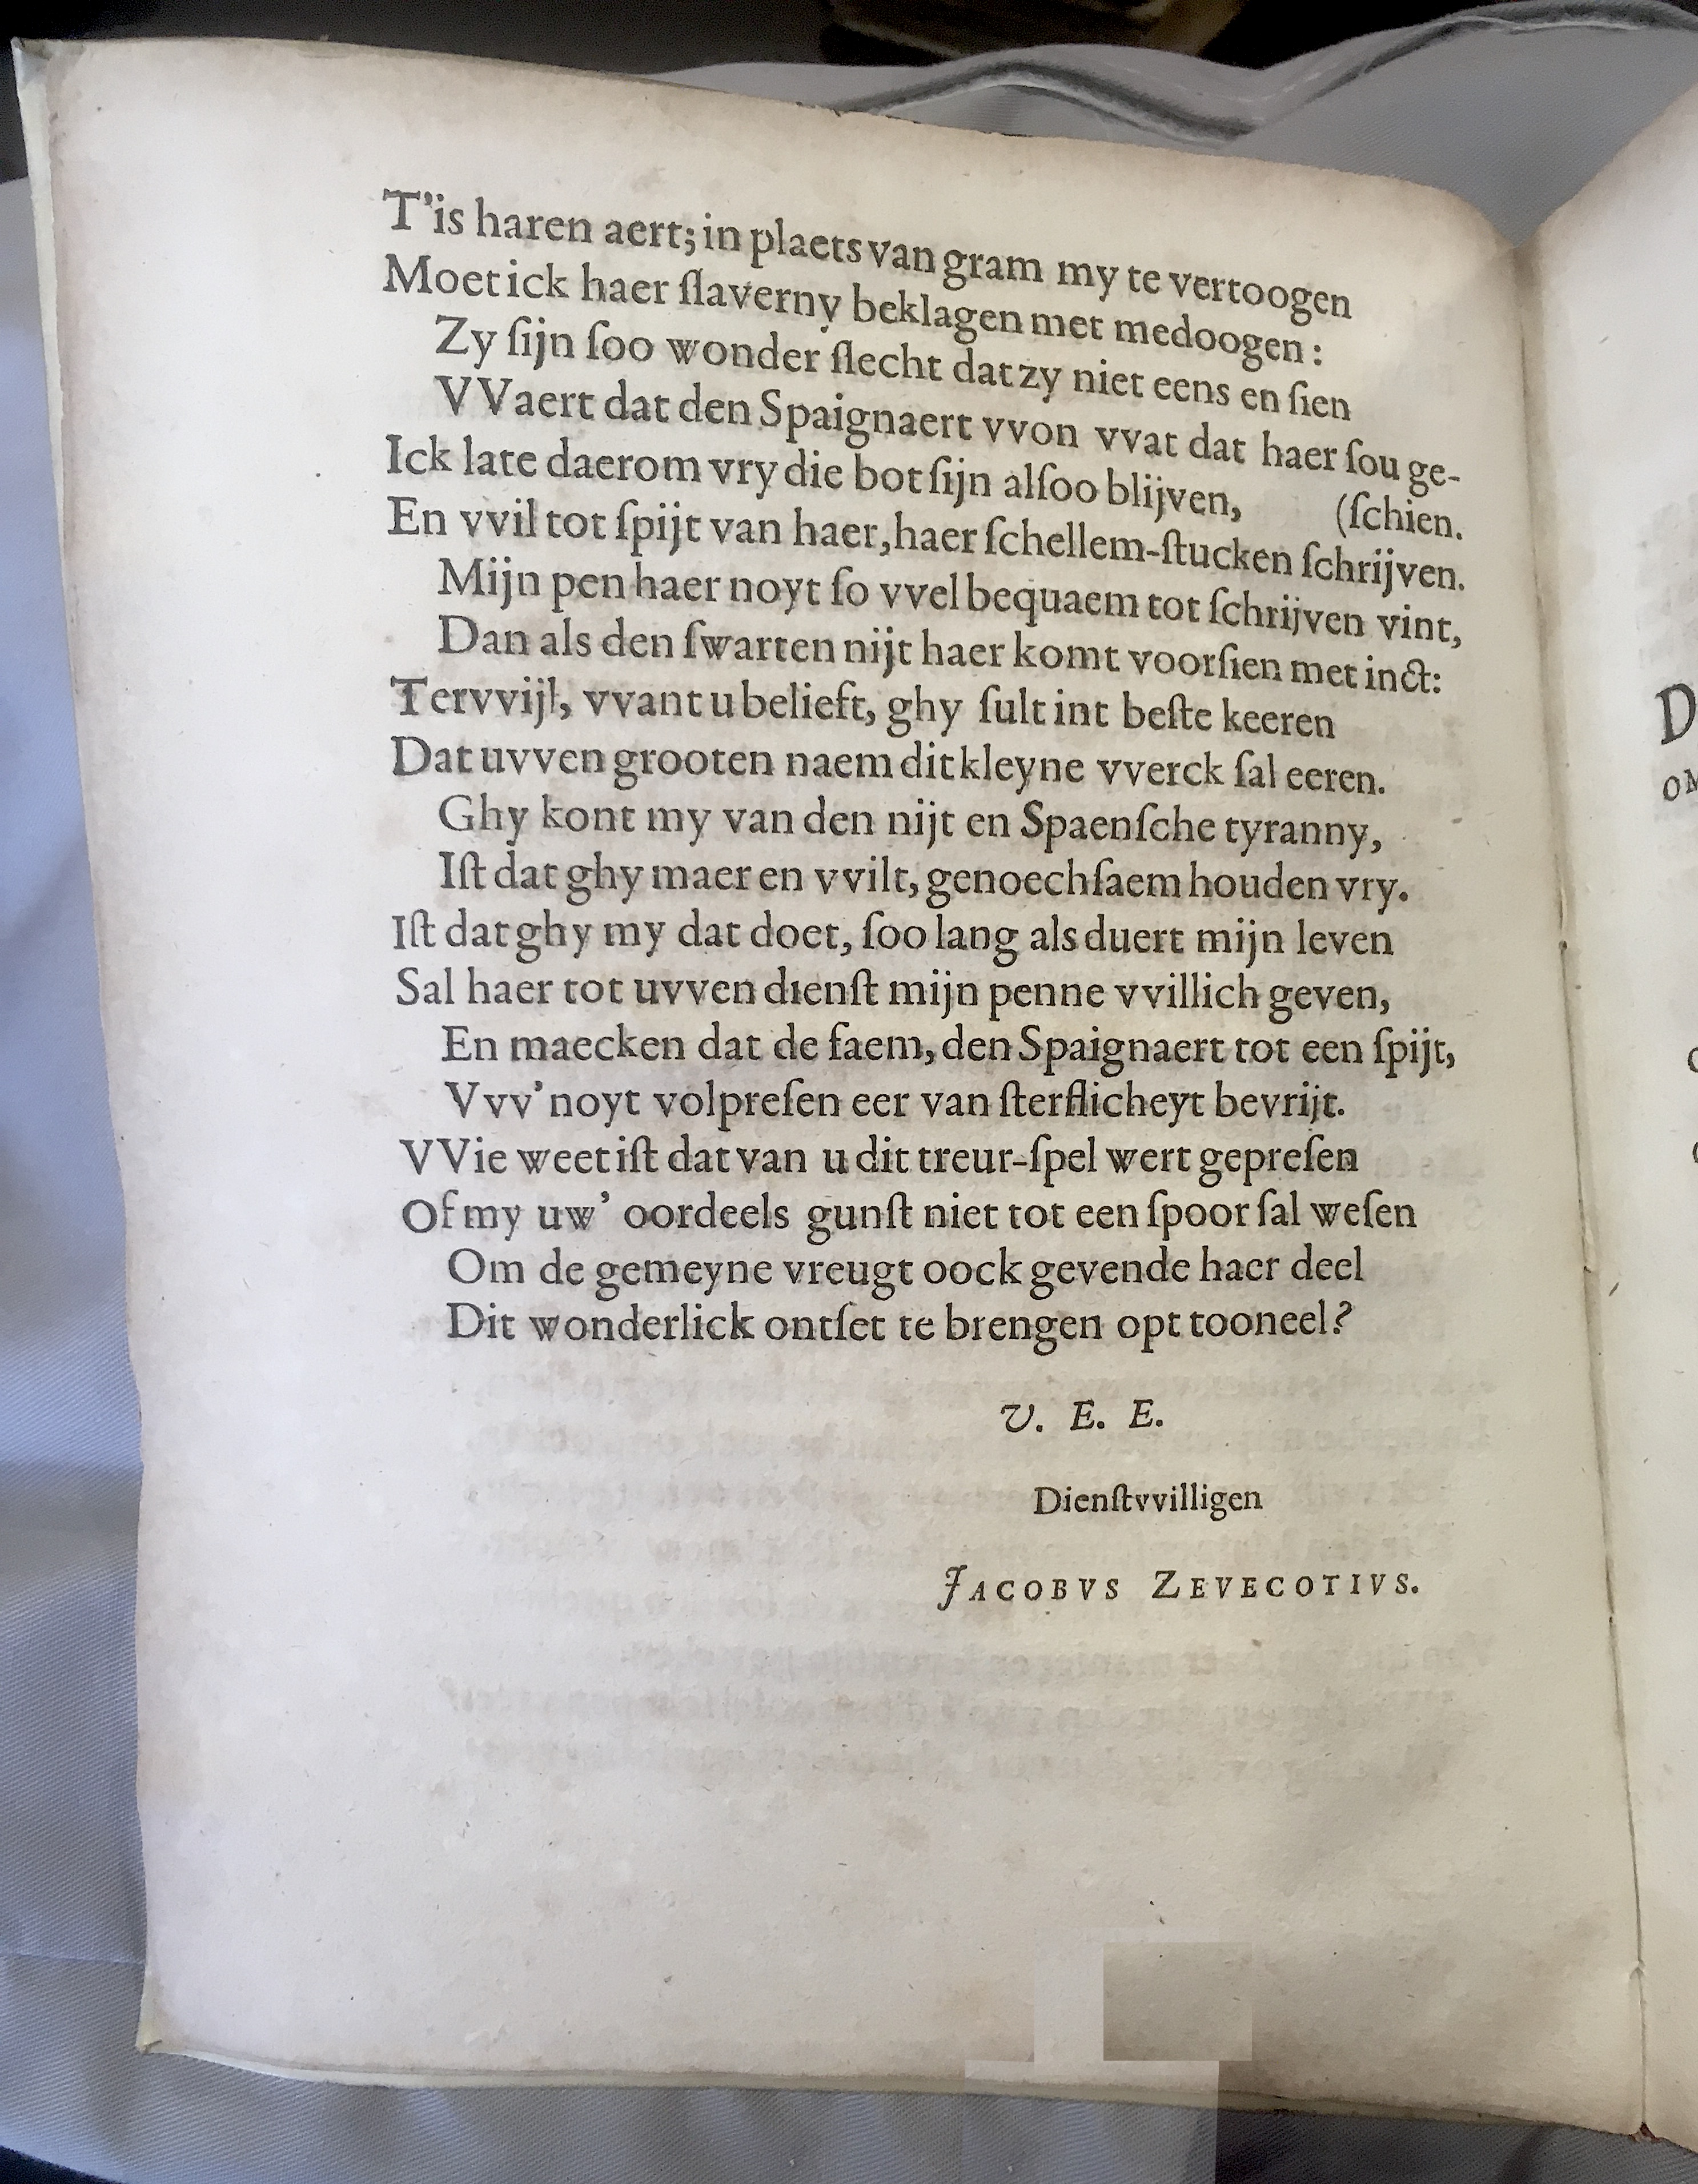 T'is haren aert; in plaets van gram my te vertoogen
Moet ick haer ſlaverny beklagen met medoogen:
Zy ſijn ſoo wonder ſlecht dat zy niet eens en ſien
VVaert dat den Spaignaert vvon vvat dat haer ſou ge-
Ick late daerom vry die bot ſijn alſoo blijven, (ſchien.
En vvil tot ſpijt van haer, haer ſchellem-ſtucken ſchrijven.
Mijn pen haer noyt ſo vvel bequaem tot ſchrijven vint,
Dan als den ſwarten nijt haer komt voorſien met inct:
Tervvijl, vvant u belieft, ghy ſult int beſte keeren
Dat uvven grooten naem dit kleyne vverck ſal eeren.
Ghy kont my van den nijt en Spaenſche tyranny,
Iſt dat ghy maer en vvilt, genoechſaem houden vry.
Iſt dat ghy my dat doet, ſoo lang als duert mijn leven
Sal haer tot uvven dienſt mijn penne vvillich geven,
En maecken dat de faem, den Spaignaert tot een ſpijt,
Vvv' noyt volpreſen eer van ſterflicheyt bevrijt.
VVie weet iſt dat van u dit treur-ſpel wert gepreſen
Of my uw' oordeels gunſt niet tot een ſpoor ſal weſen
Om de gemeyne vreugt oock gevende haer deel
Dit wonderlick ontſet te brengen opt tooneel?
V. E. E.
Dienſtvvilligen
JACOBVS ZEVECOTIVS.
D
OM